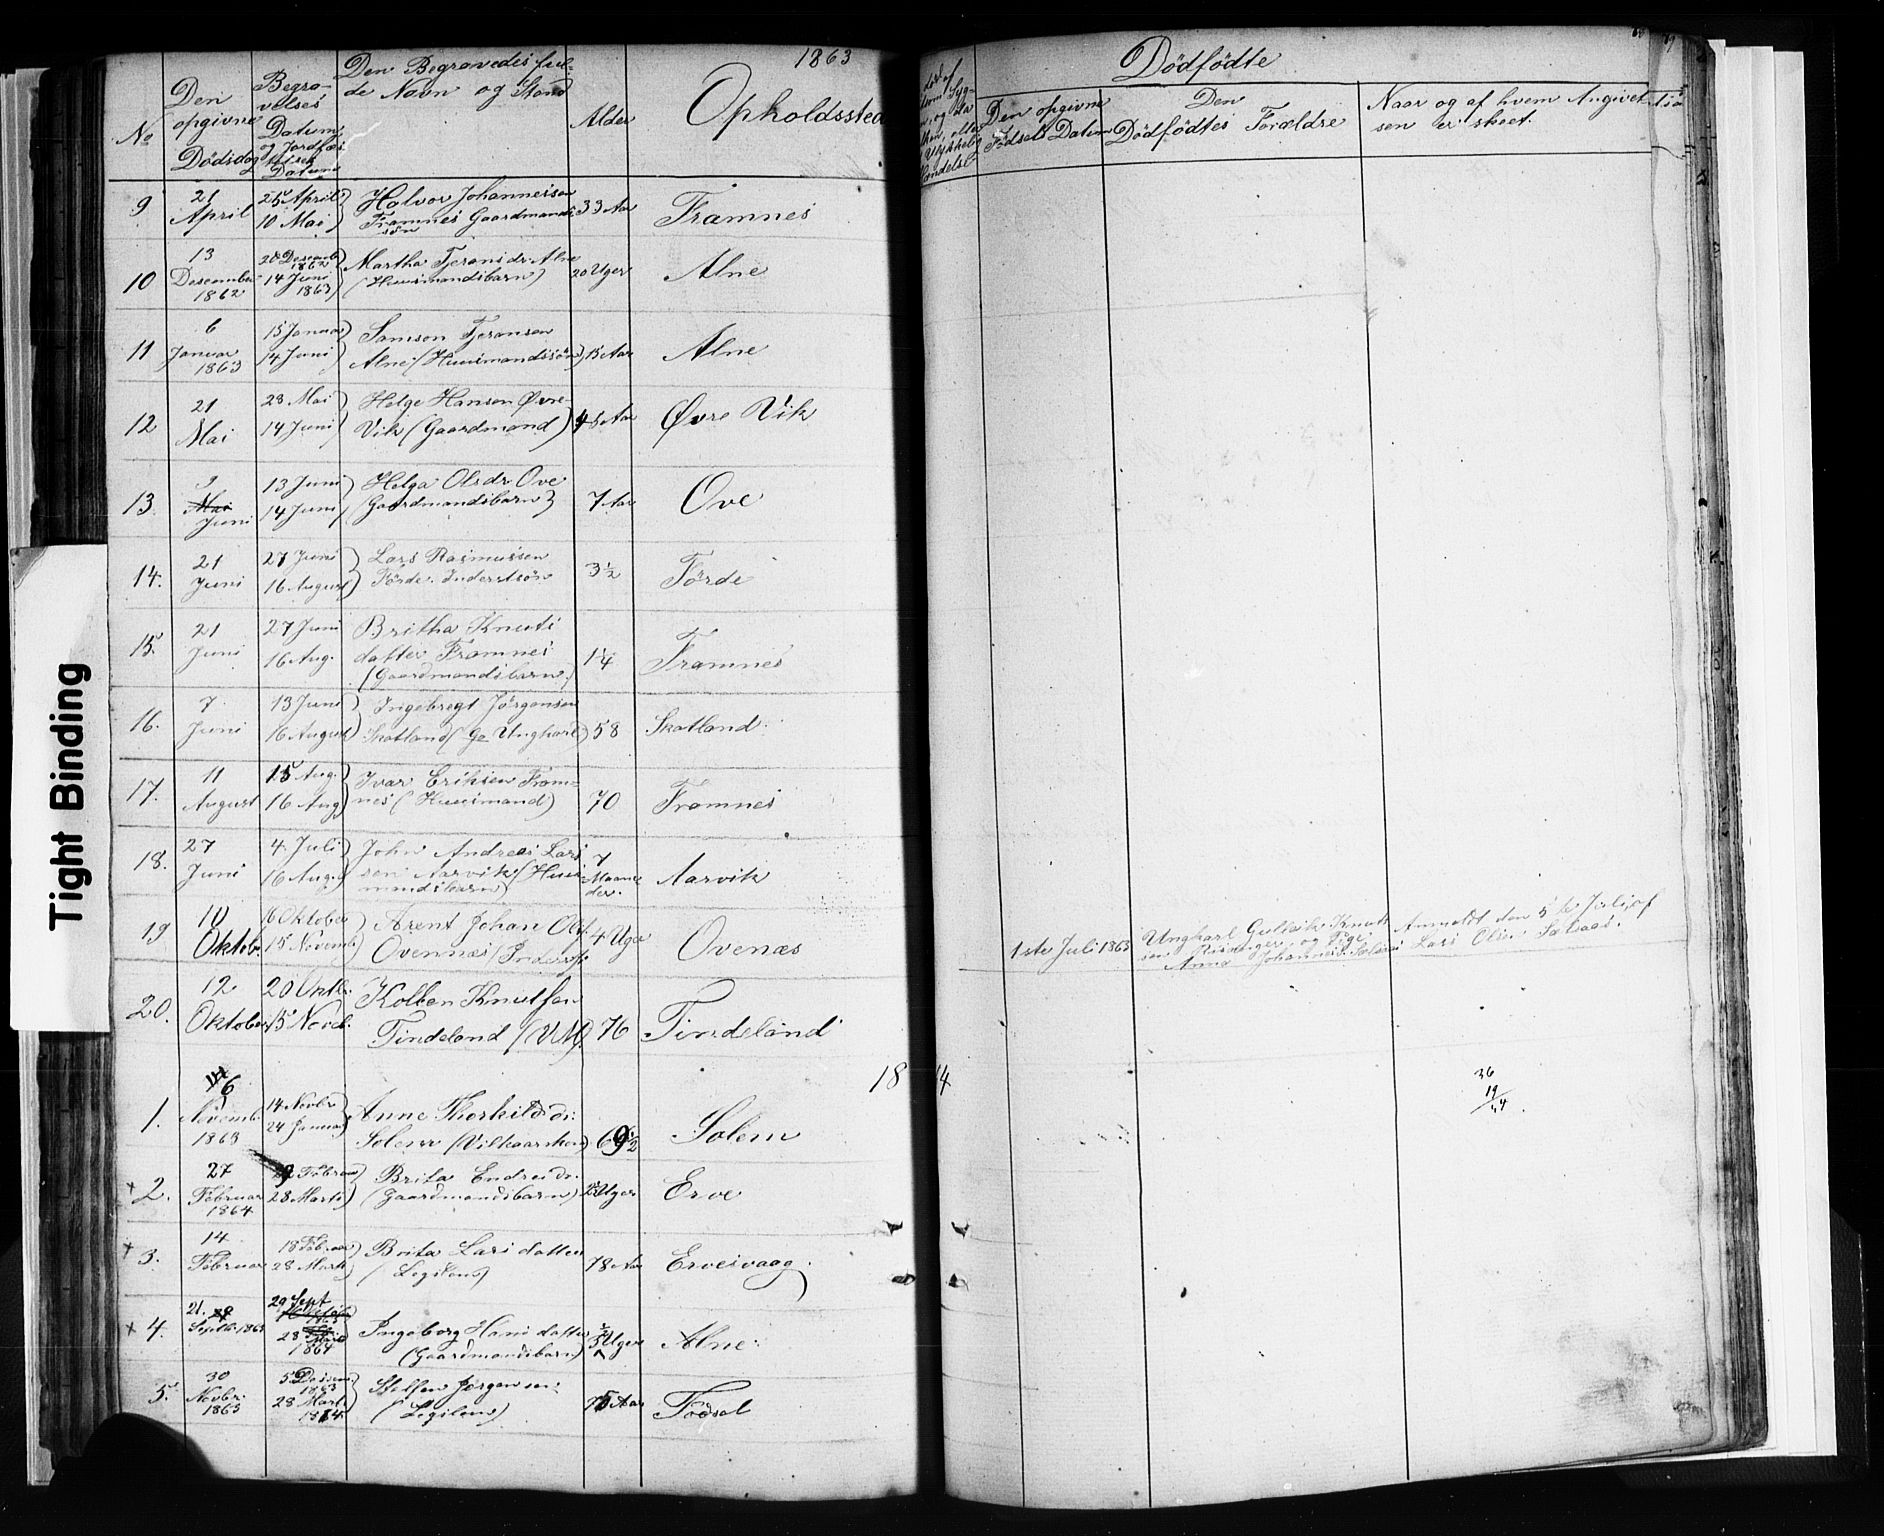 1863
No
Den opgivne Dödsdag
Begravelses Datum, og Jordfæstelses Datum
Den Begravedes fulde Navn og Stand
Alder
Opholdssted
9 21 April 25 April 10 Mai Halvor Johannessen Framnes Gaardmands sön 33 Aar Framnes
10 13 Desember 1862 20 Desemb 1862 14 Juni 1863 Martha Tjeransdr Alne (Huusmandsbarn) 20 Uger Alne
11 6 Januar 1863 15 Januar 14 Juni Samson Tjeransen Alne (Huusmandssön) 15 Aar Alne
12 21 Mai 28 Mai 14 Juni Helge Hansen Øvre Vik (Gaardmand) 45 Aar Øvre Vik
13. 9 Mai Juni 13 Juni 14 Juni Helga Olsdr Ove Gaardmandsbarn) 7 Aar Ove
14. 21 Juni 27 Juni 16 August Lars Rasmussen Förde. Inderstsön 3½ Förde
15. 21 Juni 27 Juni 16 Aug. Britha Knuts datter Framnes (Gaardmandsbarn) 1¼ Framnes
16. 7 Juni 13 Juni 16 August Ingebregt Jörgensen Skatland (Ga Ungkarl) 58 Skatland.
17. 11 August 15 Aug. 16 Aug Ivar Eriksen Framnes (Huusmand) 70 Framnes
18. 27 Juni 4 Juli 16 Aug. John Andreas Lars sen Aarvik (Huus mandsbarn) 7 Maaneder. Aarvik
19 10 Oktob. 16 Oktober 15 Novemb Arent Johan Ols Ovennæs 4 Uger Ovenæs
20. 12 Oktober 20 Oktbr 15 Novb. Kolben Knutsen Tindeland 76 Tindeland
18 4
1. 6 Novemb. 1863 14 Novbr 24 Januar Anne Thorkildsdr: Solem (Vilkaarskone) 69½ Solem
+ 2. 27 Februar 1864 Februar 28 Marts Brita Endresdr. (Gaardmandsbarn) Uger Erve
+ 3. 14 Februar 18 Februar 28 Marts Brita Lars datter (Legslem) 78 Aar Ervesvaag.
+ 4. 21. Septbr 1863 29 Sept 28 1864 Ingeborg Hans datter (Gaardmandsbarn) Uger Alne.
5. 30 Novbr. 1863 5 Desem. 1863 28 Marts 1864. Steffen Jørgensen: (Legslem) 75 Aar
Dödfödte
Den opgivne Födsels Datum
Den Dödfödtes Forældre
Naar og af hvem Angivelsen er skeet.
1ste Juli 1863 Ungkarl Gullik Knutsen og Pige Anna Johannesd. Anmeldt den 5te Juli, af Lars Olsen Sælsaas.
36
19
44
Tight Binding